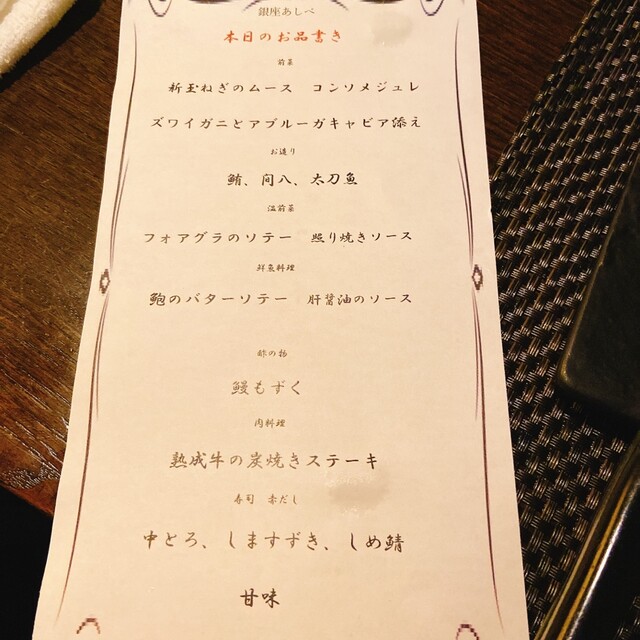 銀座あしべ
本日のお品書き
前菜
新玉ねぎのムース コンソメジュレ
ズワイガニとアブルーガキャビア添え
お造り
鮪、間八、太刀魚
温前菜
フォアグラのソテー 照り焼きソース
鮮魚料理
鮑のバターソテー 肝醤油のソース
酢の物
鰻もずく
肉料理
熟成牛の炭焼きステーキ
寿司 赤だし
中とろ、しますずき、しめ鯖
甘味